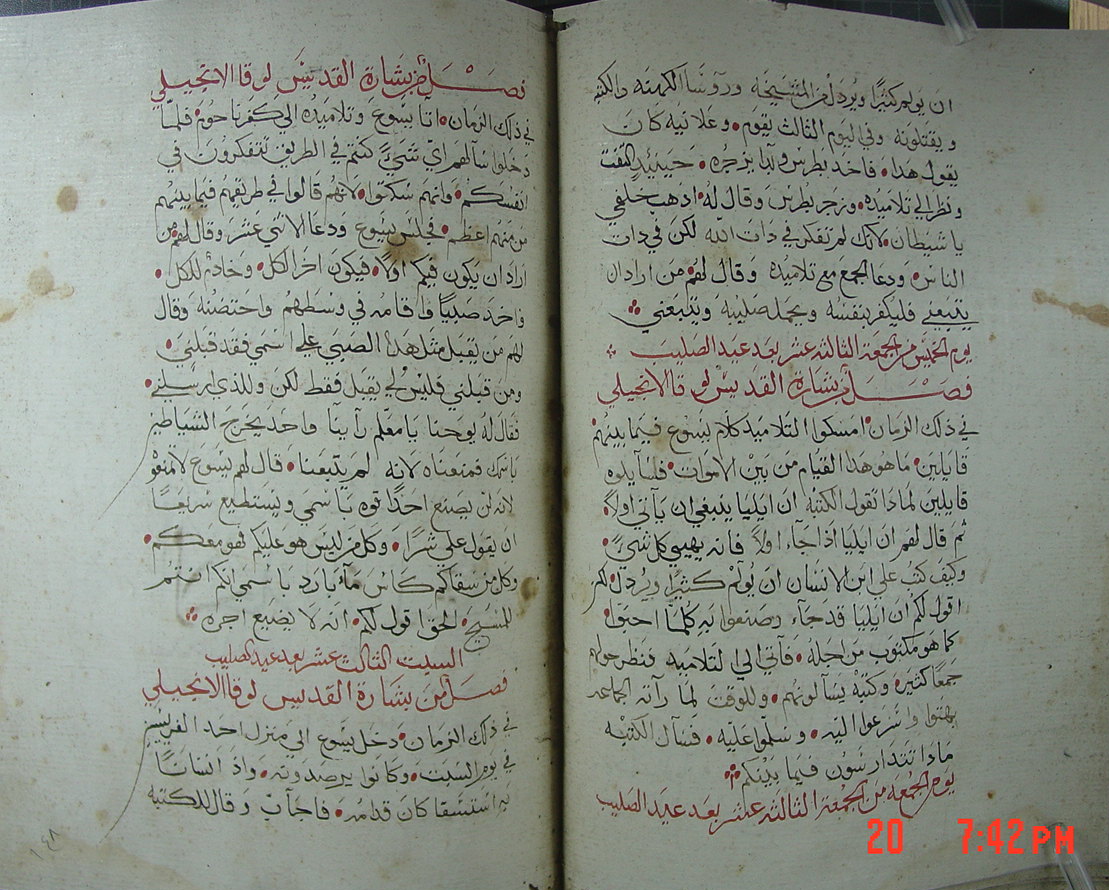 ان يولم كثيرًا ويرذل من المشيخة ورؤسا الكهنه والكتبه
ويقتلونه وفي اليوم الثالث يقوم • وعلانيه كان
يقول هدا • فاخد بطرس وبدا يزجره • حينيدٍ التفت
ونظر الي تلاميده • وزجر بطرس وقال له • ادهب خلفي
يا شيطان • لانك لم تفكر في دات الله لكن في دات
الناس • ودعا الجمع مع تلاميده وقال لهم من اراد ان
يتبعني فليكفر بنفسه ويحمل صليبه ويتبعني
يوم الخميس من الجمعة الثالثه عشر بعد عيد الصليب
فصل من بشارة القديس لوقا الانجيلي
في ذلك الزمان • امسكوا التلاميد كلام يسوع فيما بينهم
قايلين • ما هو هدا القيام من بين الاموات • فسايلوه
قايلين لمادا تقول الكتبه ان ايليا ينبغي ان ياتي اولاً •
ثم قال لهم ان ايليا ادا جآء اولاً فانه يهيي كل شيٍ •
وكيف كتب علي ابن الانسان ان يولم كثيرًا ويرذل • لكن
اقول لكم ان ايليا قد جآء وصنعوا به كلما احبوا •
كما هو مكتوب من اجله • فآتي الي التلاميد فنظر حولهم
جمعا كثيره وكتبه يسآلونهم • وللوقت لما رآته الجماعه
بهتوا واسرعوا اليه • وسلموا عليه • فسآل الكتبه
مادا تتدارسون فيما بينكم
يوم الجمعه من الجمعة الثالثه عشر بعد عيد الصليب
فصل من بشارة القديس لوقا الانجيلي
في ذلك الزمان • اتا يسوع وتلاميده الي كفرناحوم • فلما
دخلوا سالهم اي شيءٍ كنتم في الطريق تتفكرون في
انفسكم • وانهم سكتوا • لانهم قالوا في طريقهم فيما بينهم
من منهم اعظم • فجلس يسوع ودعا الاثني عشر وقال لهم من
اراد ان يكون فيكم اولاً • فيكون اخر الكل • وخادم للكل •
واخد صبياً فاقامه في وسطهم واحتضنه وقال
لهم من يقبل مثل هدا الصبي علي اسمي فقد قبلني •
ومن قبلني فليس لي يقبل فقط لكن وللدي ارسلني •
فقال له يوحنا يا معلم رآينا واحد يخرج الشياطين
باسمك فمنعناه لانه لم يتبعنا • قال لهم يسوع لا تمنعوه
لانه لن يصنع احدًا قوه باسمي ويستطيع سريعًا
ان يقول علي شرًا • وكل من ليس هو عليكم فهو معكم •
وكل من سقاكم كاس مآء بارد باسمي انكم انتم
للمسيح • الحق اقول لكم • انه لا يضيع اجره
السبت الثالث عشر بعد عيد الصليب
فصل من بشارة القديس لوقا الانجيلي
في ذلك الزمان • دخل يسوع الي منزل احد الفريسيين
في يوم السبت • وكانوا يرصدونه • واذ انسانًا
به استسقا كان قدامه • فاجآب وقال للكتبه
١٤٨
20 7:42 PM